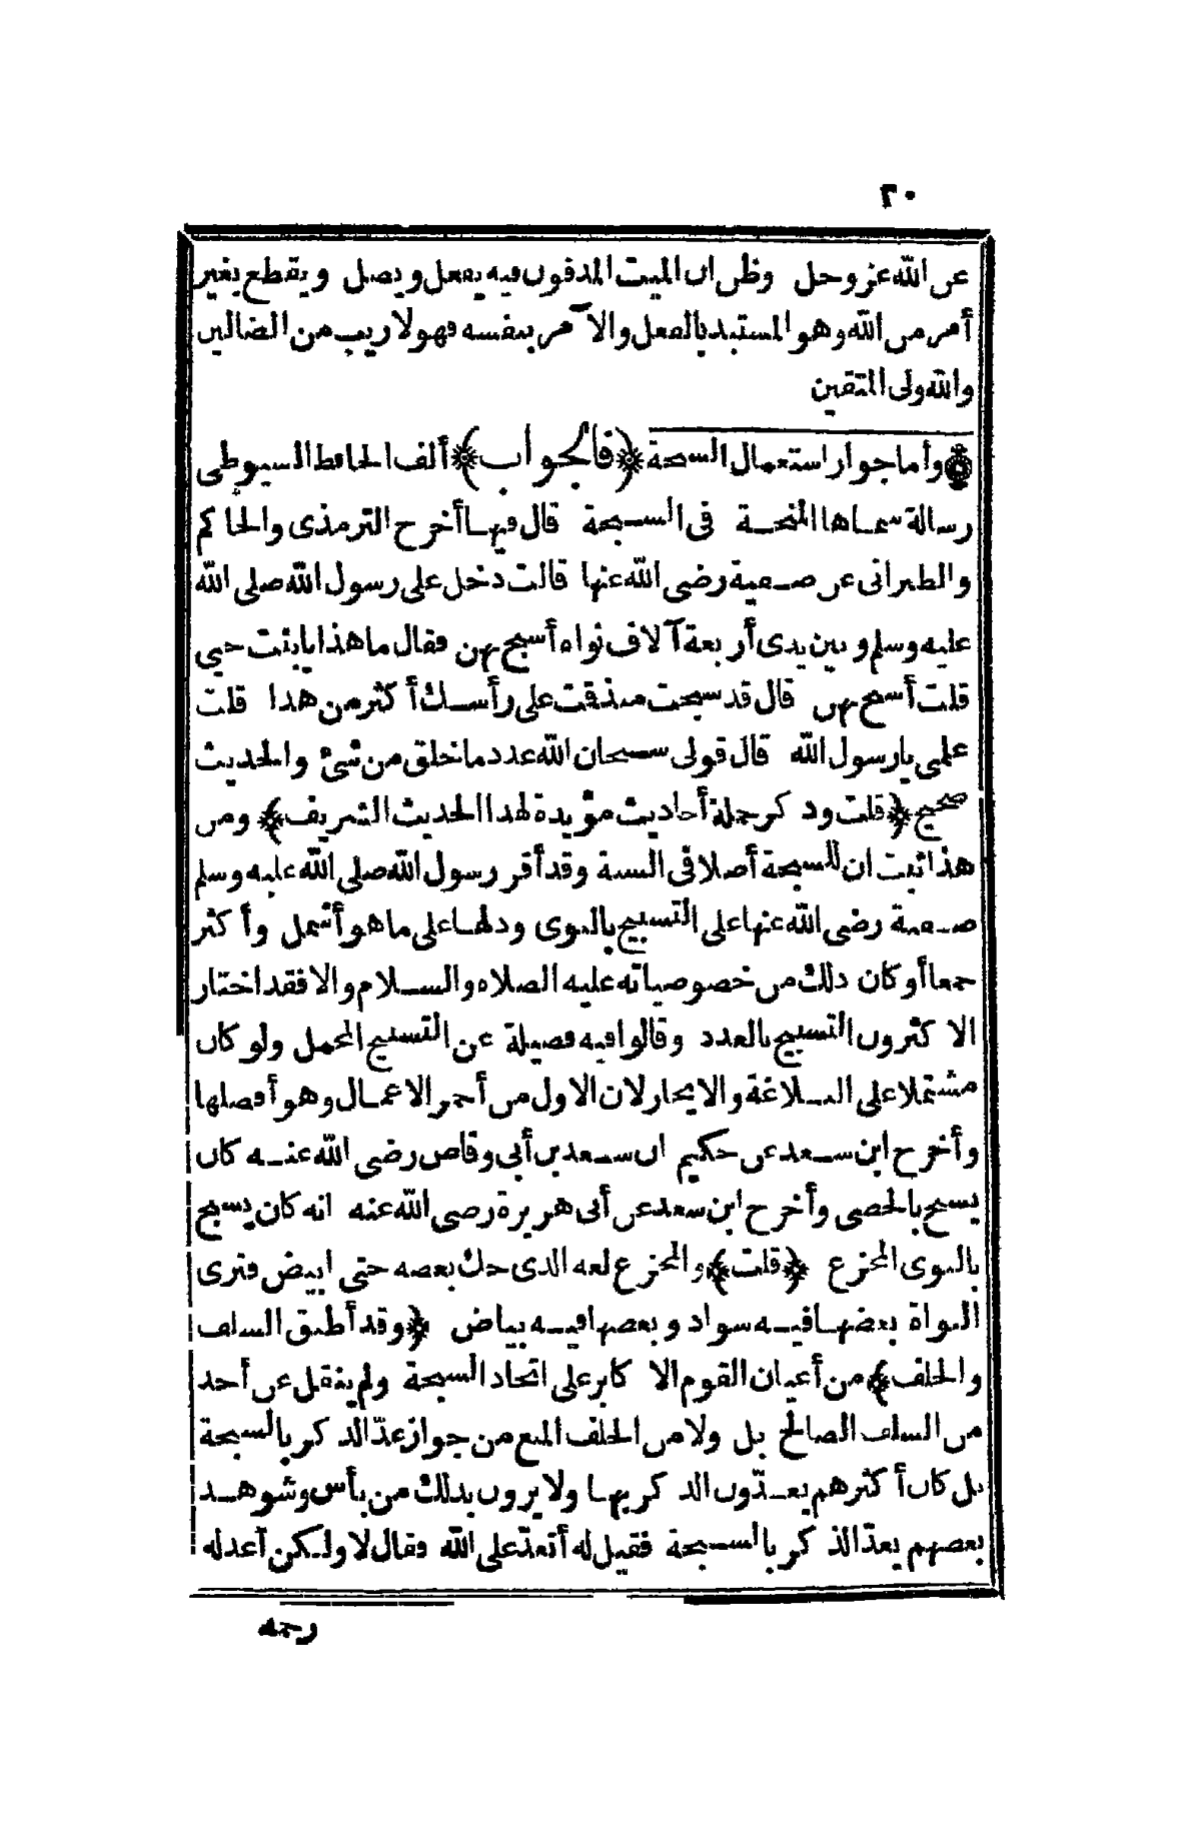 ٢٠
عن الله عز وجل وظن ان الميت المدفون فيه يفعل ويصل ويقطع بغير
أمر من الله وهو المستبد بالفعل والآمر بنفسه فهو لا ريب من الضالين
والله ولى المتقين
﴿وأما جواز استعمال السبحة﴾ ﴿فالجواب﴾ ألف الحافظ السيوطى
رسالة سماها المنحة فى السبحة قال فيها أخرج الترمذى والحاكم
والطبرانى عن صفية رضى الله عنها قالت دخل على رسول الله صلى الله
عليه وسلم وبين يدى أربعة آلاف نواه أسبح بهن فقال ما هذا يا بنت حيى
قلت أسبح بهن قال قد سبحت منذ قت على رأسك أكثر من هذا قلت
علمى يا رسول الله قال قولى سبحان الله عدد ما خلق من شئ والحديث
صحيح ﴿قلت ود كر جملة أحاديث مؤيدة لهذا الحديث الشريف﴾ ومن
هذا ثبت ان للسبحة أصلا فى السنة وقد أقر رسول الله صلى الله عليه وسلم
صفية رضى الله عنها على التسبيح بالنوى ودلها على ما هو أشمل وأكثر
جمعا أو كان ذلك من خصوصياته عليه الصلاه والسلام والا فقد اختار
الاكثرون التسبيح بالعدد وقالوا فيه فضيلة عن التسبيح المجمل ولو كان
مشتملا على البلاغة والايجاز لان الاول من أحمز الاعمال وهو أفضلها
وأخرج ابن سعد عن حكيم ان سعد بن أبى وقاص رضى الله عنه كان
يسبح بالحصى وأخرج ابن سعد عن أبى هريرة رضى الله عنه انه كان يسبح
بالنوى المجزع ﴿قلت﴾ والمجزع لغه الذى حك بعضه حتى ابيض فترى
النواة بعضها فيه سواد وبعضها فيه بياض ﴿وقد أطبق السلف
والخلف﴾ من أعيان القوم الاكابر على اتخاد السبحة ولم ينقل عن أحد
من السلف الصالح بل ولا من الخلف المنع من جواز عدّ الذكر بالسبحة
بل كان أكثرهم يعدّون الذكر بها ولا يرون بذلك من بأس وشوهد
بعضهم يعدّ الذكر بالسبحة فقيل له أتعدّ على الله فقال لا ولكن أعد له
رحمه